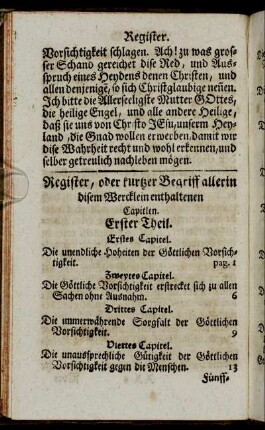 Register.
Vorsichtigkeit schlagen. Ach! zu was gros-
ser Schand gereichet dise Red, und Aus-
spruch eines Heydens denen Christen, und
allen denjenige, so sich Christglaubige neñen.
Ich bitte die Allerseeligste Mutter GOttes,
die heilige Engel, und alle andere Heilige,
daß sie uns von Christo JEsu, unserm Hey-
land, die Gnad wollen erwerben, damit wir
dise Wahrheit recht und wohl erkennen, und
selber getreulich nachleben mögen.
Register, oder kurtzer Begriff allerin
disem Wercklein enthaltenen
Capitlen.
Erster Theil.
Erstes Capitel.
Die unendliche Hoheiten der Göttlichen Vorsich-
tigkeit. pag. 1
Zweytes Capitel.
Die Göttliche Vorsichtigkeit erstrecket sich zu allen
Sachen ohne Ausnahm. 6
Drittes Capitel.
Die immerwährende Sorgfalt der Göttlichen
Vorsichtigkeit. 9
Viertes Capitel.
Die unaussprechliche Gütigkeit der Göttlichen
Vorsichtigkeit gegen die Menschen. 13
Fünff-